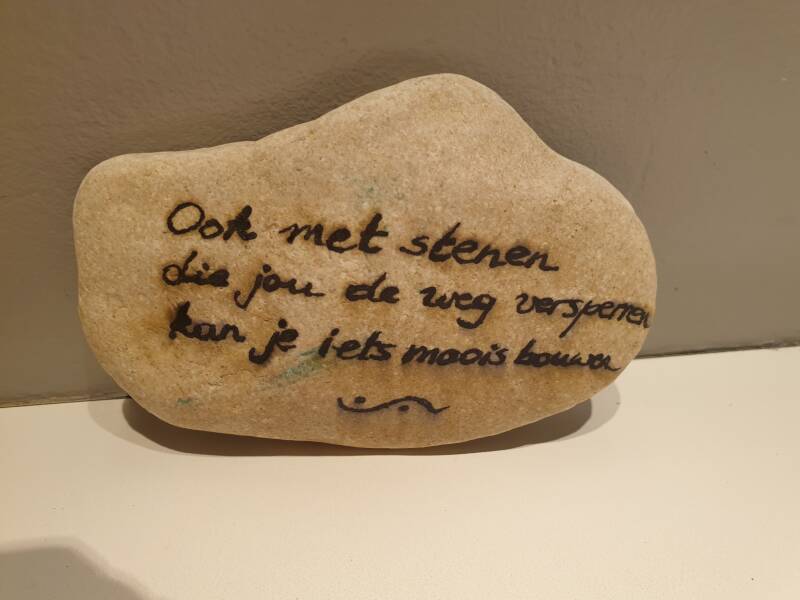 Ook met stenen
die jou de weg versperren
kan je iets moois bouwen